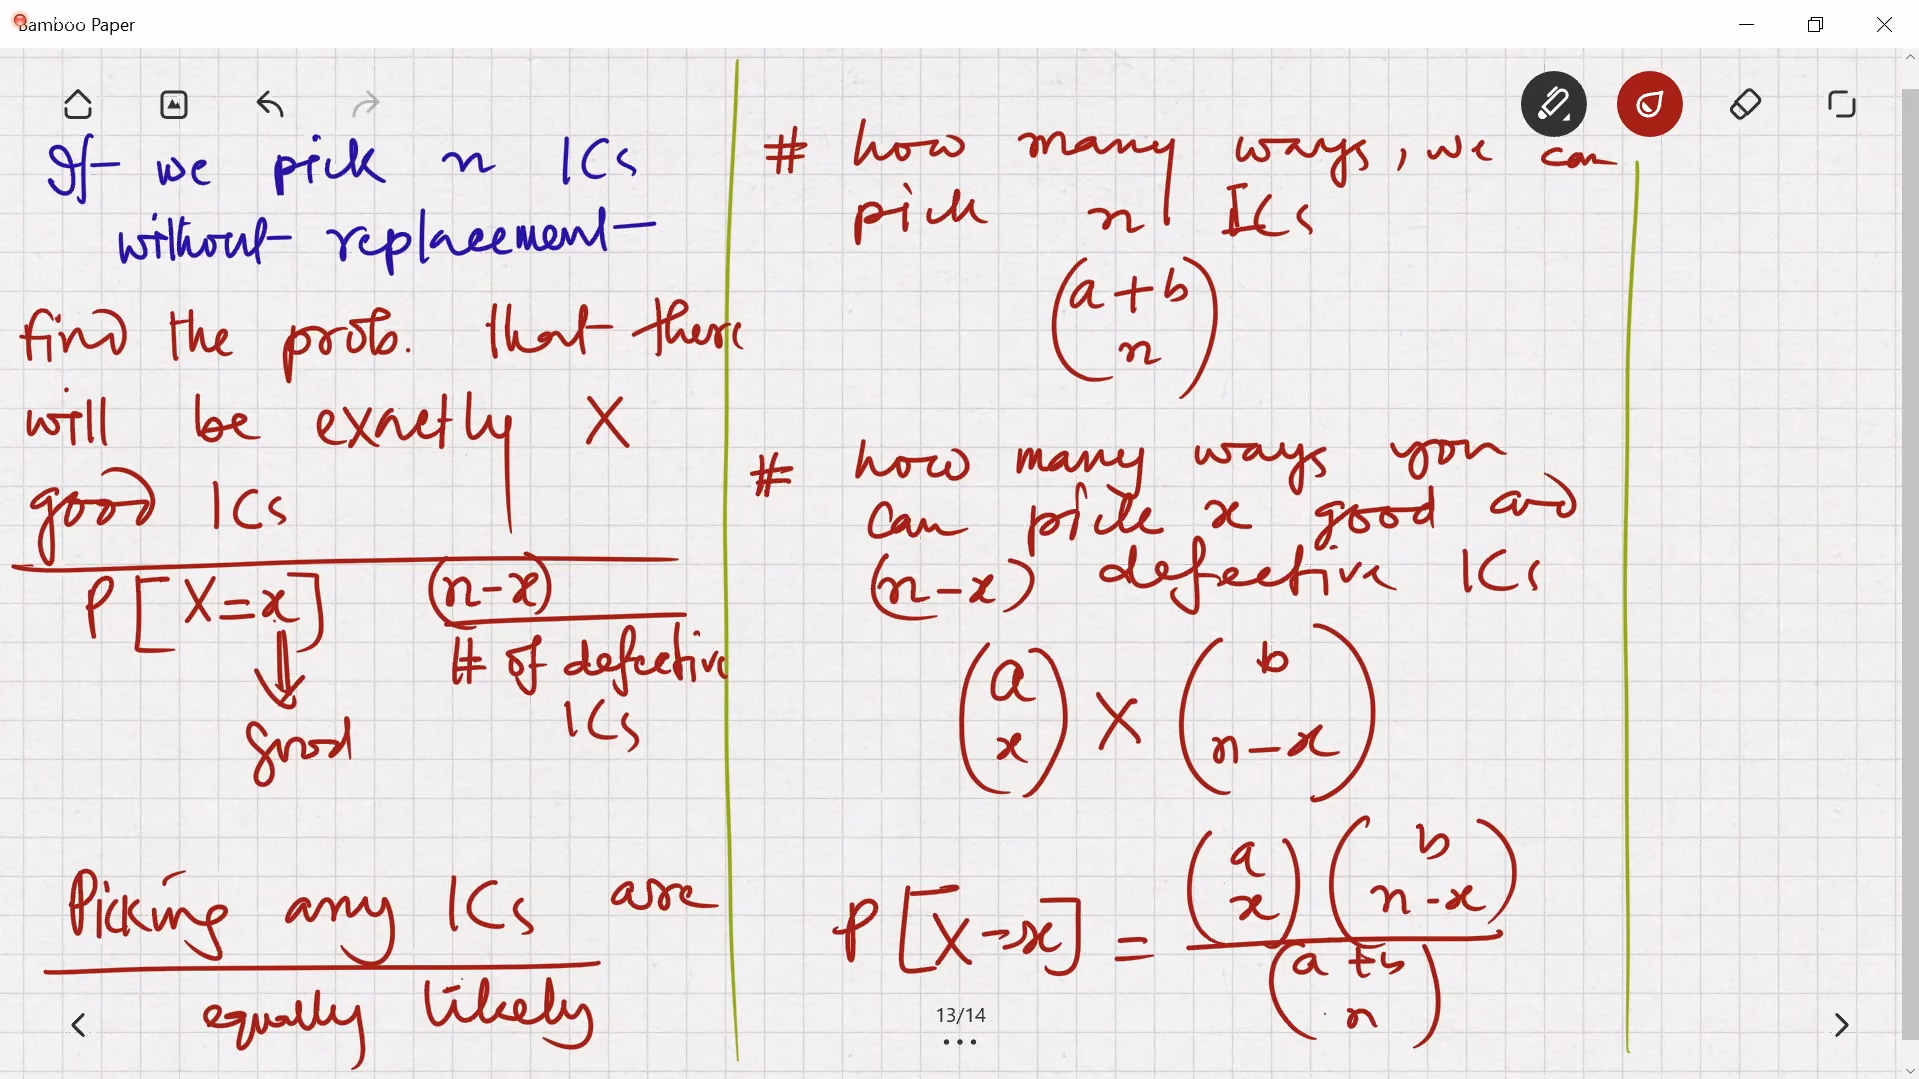 Bamboo Paper
If we pick n ICs
without replacement
find the prob. that there
will be exactly X
good ICs
P[X=x] (n-x)
# of defective
ICs
good
Picking any ICs are
equally likely
# how many ways, we can
pick n ICs
(a+b
n)
# how many ways you
can pick x good and
(n-x) defective ICs
(a
x) X (b
n-x)
P[X=x] = (a
x) (b
n-x)
(a+b
n)
13/14